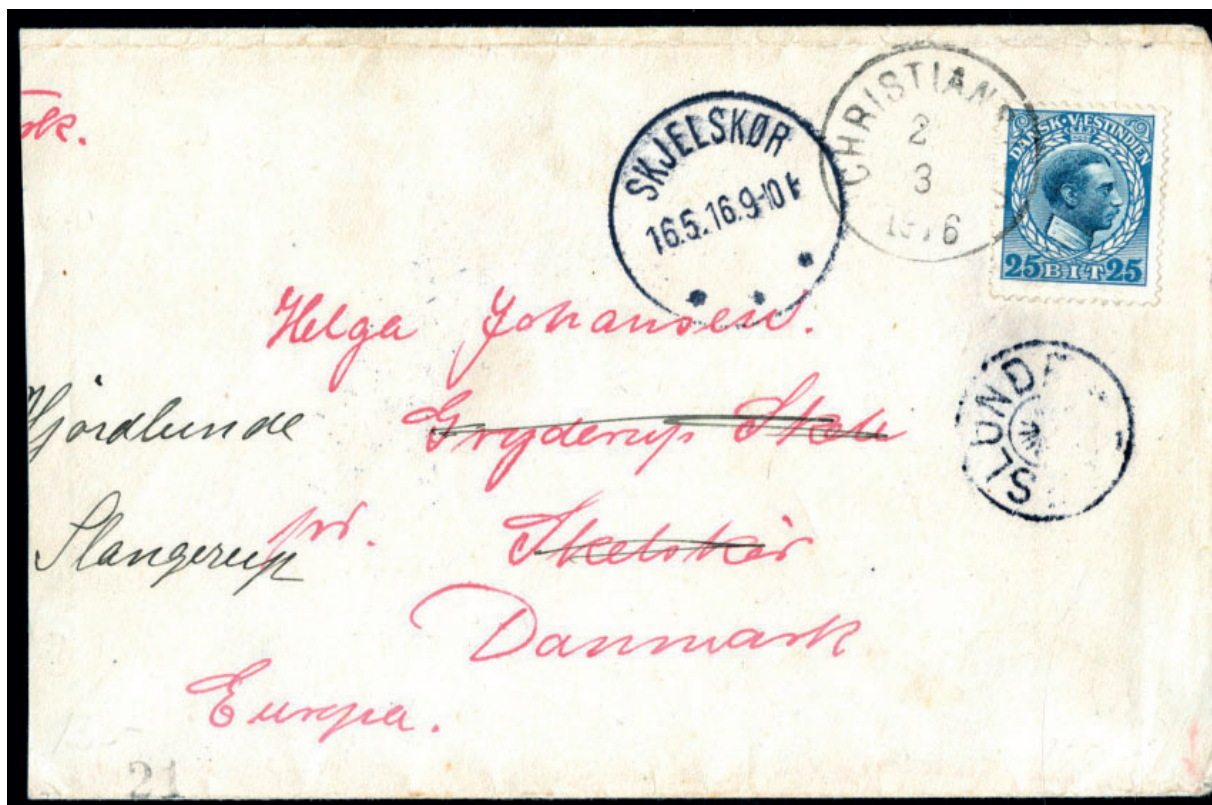 SKJELSKØR
16.5.16.9-10
CHRISTIANS
2
3
1916
DANSK·VESTINDIEN
25 BIT 25
Helga Johansen.
Hjördlunde
Gryderup
Slangerup
pr.
Skelskör
SLUNDE
Danmark
Europa.
21